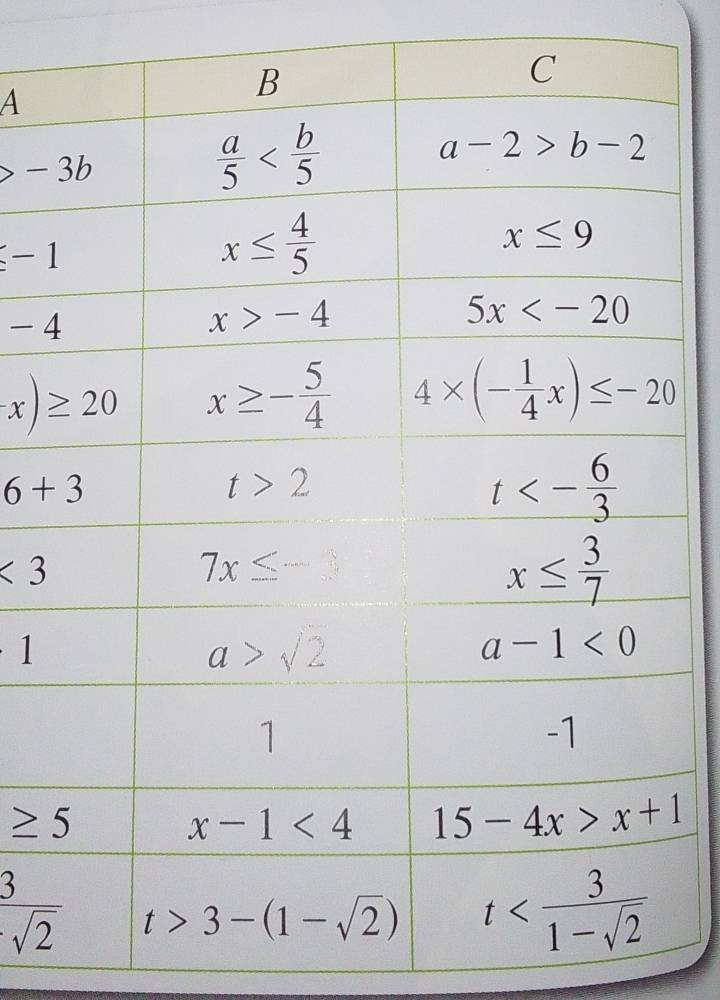 A B C
> − 3b a/5 < b/5 a − 2 > b − 2
≤ − 1 x ≤ 4/5 x ≤ 9
− 4 x > − 4 5x < − 20
x) ≥ 20 x ≥ − 5/4 4 × (− 1/4 x) ≤ − 20
6 + 3 t > 2 t < − 6/3
< 3 7x ≤ − 3 x ≤ 3/7
1 a > √2 a − 1 < 0
1 -1
≥ 5 x − 1 < 4 15 − 4x > x + 1
3/√2 t > 3 − (1 − √2) t < 3/(1 − √2)